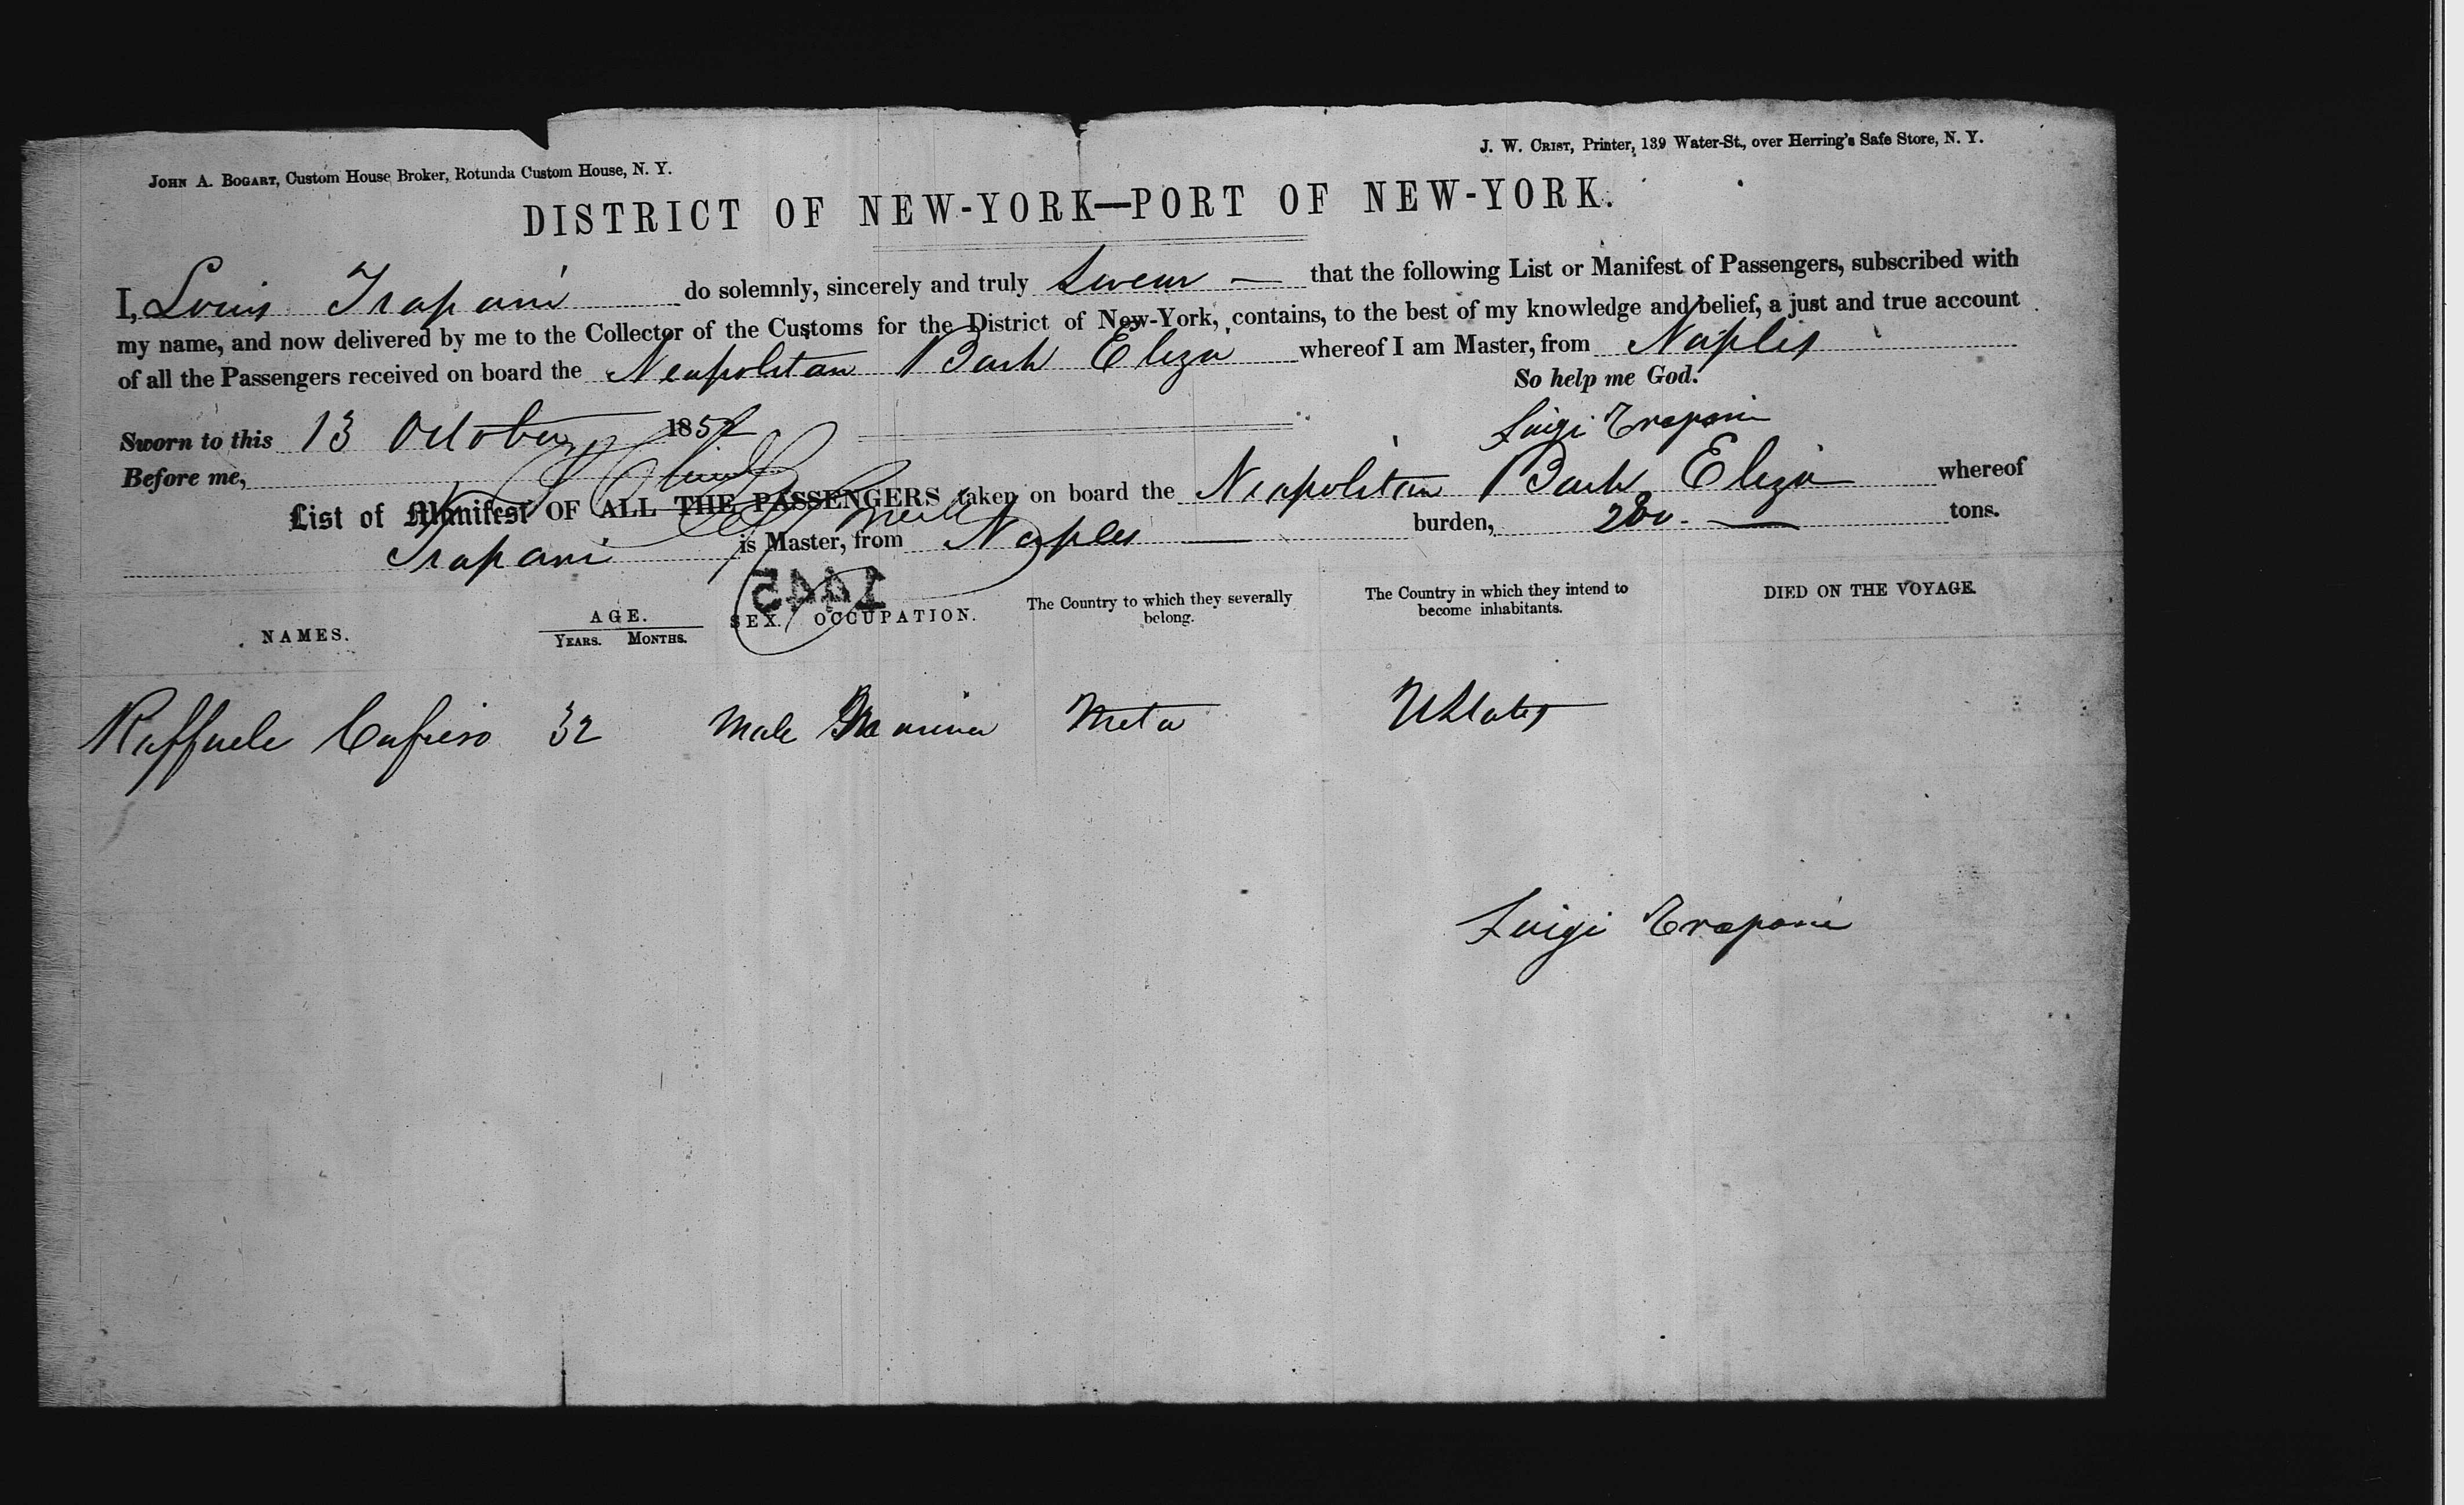 JOHN A. BOGART, Custom House Broker, Rotunda Custom House, N. Y.
J. W. CRIST, Printer, 139 Water-St., over Herring's Safe Store, N. Y.
DISTRICT OF NEW-YORK—PORT OF NEW-YORK.
I, Louis Trapani do solemnly, sincerely and truly Swear — that the following List or Manifest of Passengers, subscribed with
my name, and now delivered by me to the Collector of the Customs for the District of New-York, contains, to the best of my knowledge and belief, a just and true account
of all the Passengers received on board the Neapolitan Bark Eliza whereof I am Master, from Naples
So help me God.
Sworn to this 13 October 185
Luigi Trapani
Before me,
List of Manifest OF ALL THE PASSENGERS taken on board the Neapolitan Bark Eliza whereof
Trapani is Master, from Naples — burden, 280. — tons.
1445
NAMES. AGE. YEARS. MONTHS. SEX. OCCUPATION. The Country to which they severally belong. The Country in which they intend to become inhabitants. DIED ON THE VOYAGE.
Raffaele Cafiero 32 Male Mariner Meta UStates
Luigi Trapani